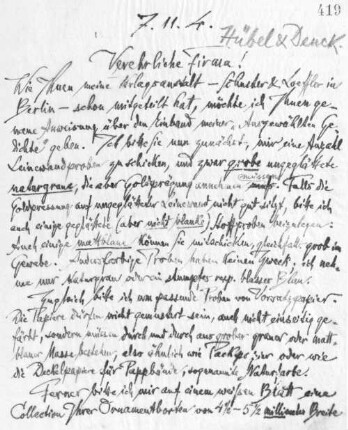 419
7.11.4.
Hübel & Denck
Verehrliche Firma!
Wie Ihnen meine Verlagsanstalt – Schuster & Loeffler in
Berlin – schon mitgeteilt hat, möchte ich Ihnen ge-
naue Anweisung über den Einband meiner „Ausgewählten Ge-
dichte" geben. Ich bitte Sie nun zunächst, mir eine Anzahl
Leinewandproben zu schicken, und zwar grobe ungeglättete
naturgraue, die aber Goldprägung annehmen muss. Falls die
Goldpressung auf ungeglätteter Leinewand nicht gut sitzt, bitte ich
auch einige geglättete (aber nicht blanke) Stoffproben beizulegen.
Auch einige mattblaue können Sie mitschicken, gleichfalls grob im
Gewebe. Andersfarbige Proben haben keinen Zweck. Ich neh-
me nur Naturgrau oder ein stumpfes resp. blasser Blau.
Zugleich bitte ich um passende Proben von Vorsatzpapier.
Die Papiere dürfen nicht gemustert sein, auch nicht einseitig ge-
färbt, sondern müssen durch und durch aus grober grauer oder matt-
blauer Masse bestehen, also ähnlich wie Packpapier oder wie
die Deckelpapiere für Pappbände, sogenannte Naturfarbe.
Ferner bitte ich, mir auf einem weißen Blatt eine
Collection Ihrer Ornamentborten von 4½ – 5½ millimeter Breite